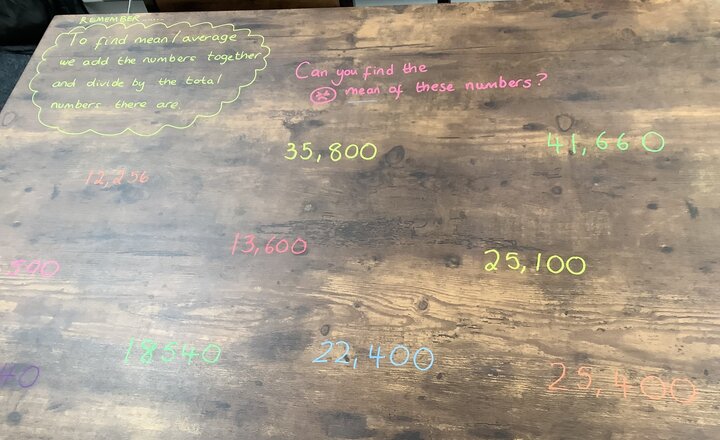 REMEMBER......
To find mean/average
we add the numbers together
and divide by the total
numbers there are
Can you find the
mean of these numbers?
35,800
41,660
12,256
13,600
25,100
18540
22,400
25,400